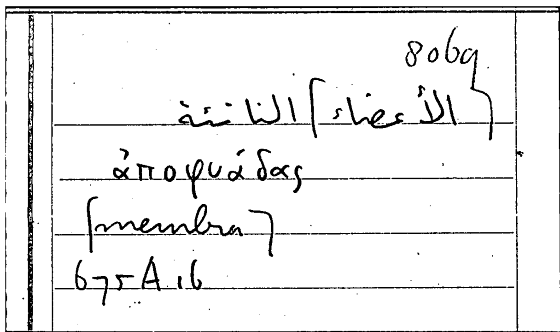 806a
[الأعضاء] الناتئة
ἀποφυάδας
[membra]
675A.16